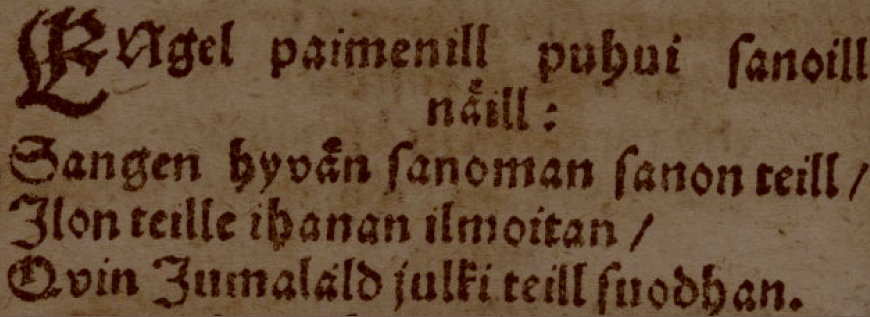 ENgel paimenill puhui sanoill
näill:
Sangen hyvän sanoman sanon teill /
Jlon teille ihanan ilmoitan /
Qvin Jumaläld julki teill suodhan.